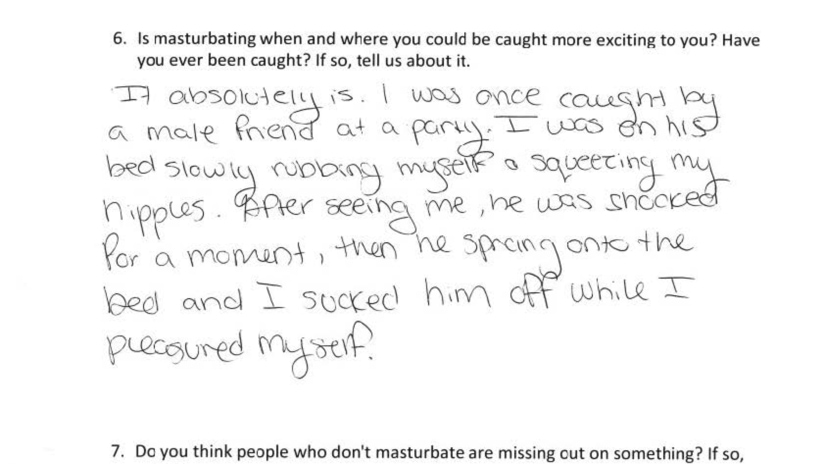 6. Is masturbating when and where you could be caught more exciting to you? Have
you ever been caught? If so, tell us about it.
It absolutely is. I was once caught by
a male friend at a party. I was on his
bed slowly rubbing myself & squeezing my
nipples. After seeing me, he was shocked
for a moment, then he sprang onto the
bed and I sucked him off while I
pleasured myself.
7. Do you think people who don't masturbate are missing out on something? If so,